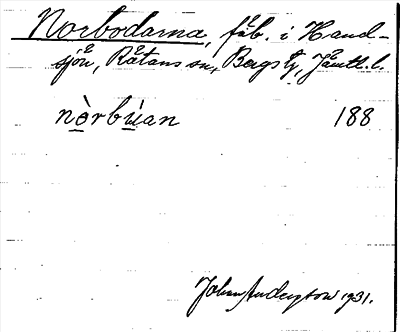 Norbodarna, fäb. i Hand-
sjön, Rätans sn, Bergs tg, Jämtl. l.
nòrbúan 188
Johan Anderson 1931.